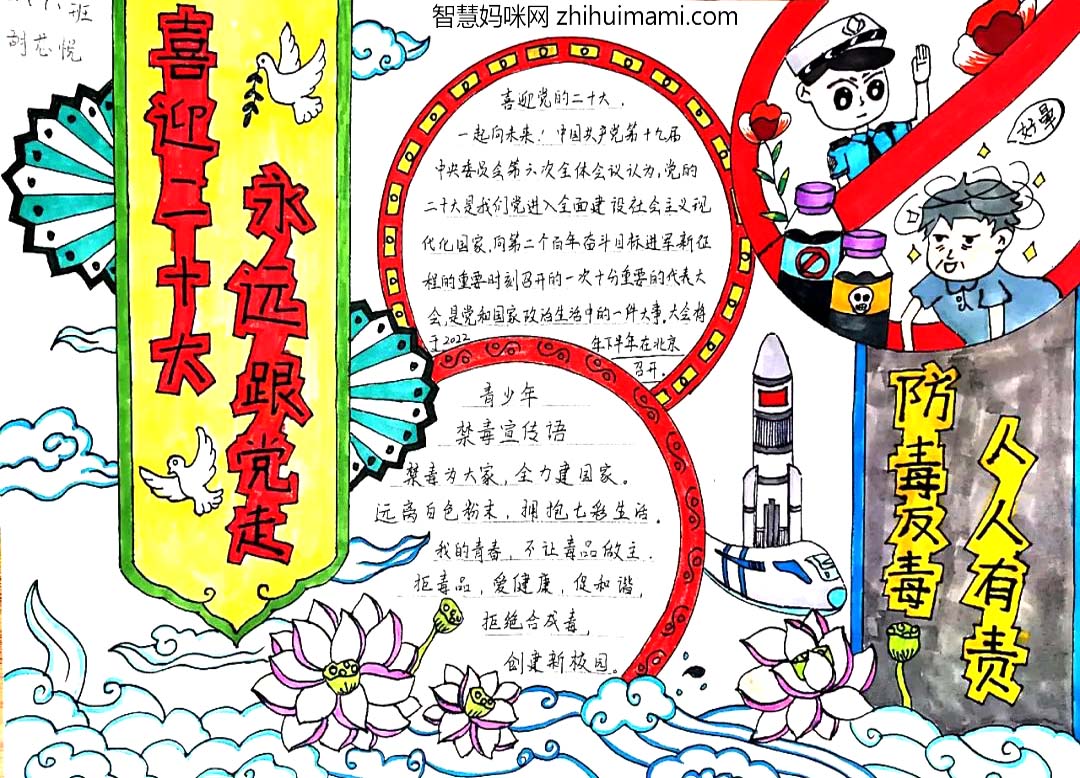 智慧妈咪网 zhihuimami.com
班
胡芯悦
喜迎二十大
永远跟党走
喜迎党的二十大.
一起向未来！中国共产党第十九届
中央委员会第六次全体会议认为,党的
二十大是我们党进入全面建设社会主义现
代化国家,向第二个百年奋斗目标进军新征
程的重要时刻召开的一次十分重要的代表大
会,是党和国家政治生活中的一件大事.大会将
于2022 年下半年在北京
召开.
好晕
青少年
禁毒宣传语
禁毒为大家,全力建国家。
远离白色粉末,拥抱七彩生活.
我的青春,不让毒品做主.
拒毒品,爱健康,促和谐,
拒绝合成毒,
创建新校园。
防毒反毒
人人有责